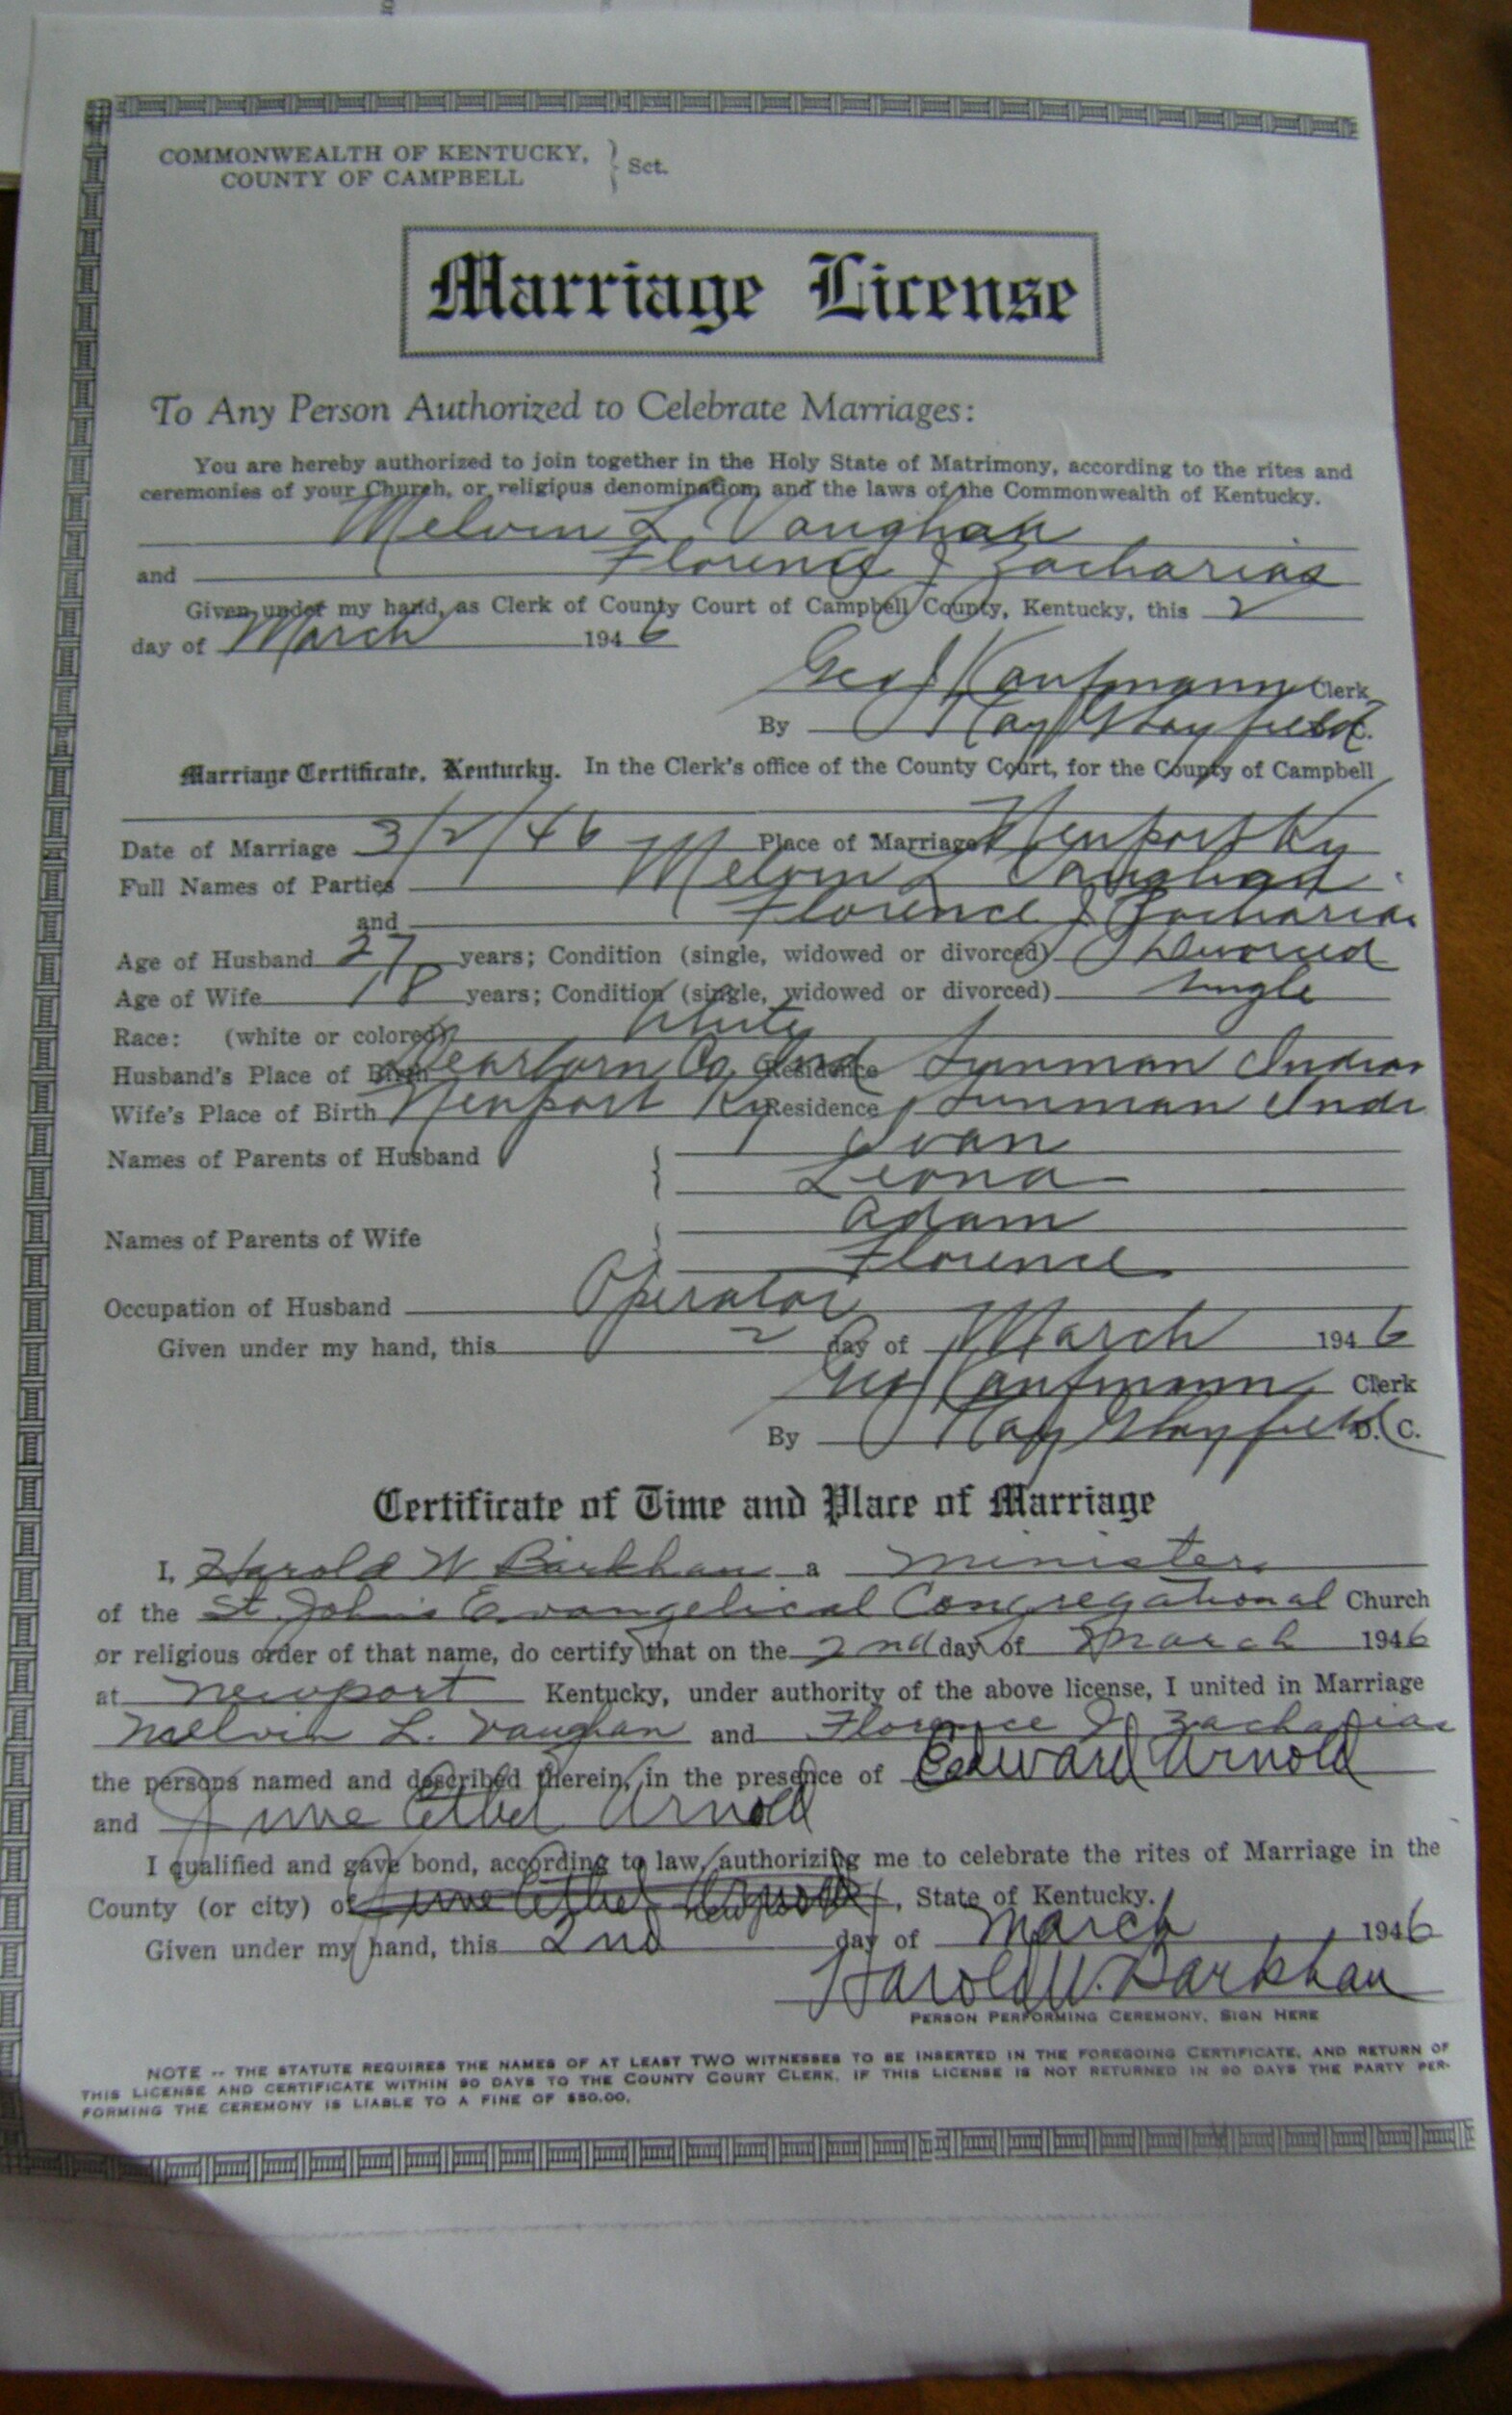 COMMONWEALTH OF KENTUCKY,
COUNTY OF CAMPBELL } Sct.
Marriage License
To Any Person Authorized to Celebrate Marriages:
You are hereby authorized to join together in the Holy State of Matrimony, according to the rites and
ceremonies of your Church, or religious denomination, and the laws of the Commonwealth of Kentucky.
Melvin L Vaughan
and Florence J Zacharias
Given under my hand, as Clerk of County Court of Campbell County, Kentucky, this 2
day of March 1946
Geo J Kaufmann Clerk
By Kay Mayfield D. C.
Marriage Certificate, Kentucky. In the Clerk's office of the County Court, for the County of Campbell
Date of Marriage 3/2/46 Place of Marriage Newport Ky
Full Names of Parties Melvin L Vaughan
and Florence J Zacharias
Age of Husband 27 years; Condition (single, widowed or divorced) Divorced
Age of Wife 18 years; Condition (single, widowed or divorced) Single
Race: (white or colored) White
Husband's Place of Birth Dearborn Co. Ind Residence Sunman Indian
Wife's Place of Birth Newport Ky Residence Sunman Indi
Names of Parents of Husband { Ivan
Leona
Names of Parents of Wife } Adam
Florence
Occupation of Husband Operator
Given under my hand, this 2 day of March 1946
Geo J Kaufmann Clerk
By Kay Mayfield D. C.
Certificate of Time and Place of Marriage
I, Harold W Barkhau a minister
of the St. John's Evangelical Congregational Church
or religious order of that name, do certify that on the 2nd day of March 1946
at Newport Kentucky, under authority of the above license, I united in Marriage
Melvin L. Vaughan and Florence J. Zacharias
the persons named and described therein, in the presence of Edward Arnold
and June Ethel Arnold
I qualified and gave bond, according to law, authorizing me to celebrate the rites of Marriage in the
County (or city) of June Ethel Arnold Newport, State of Kentucky.
Given under my hand, this 2nd day of March 1946
Harold W. Barkhau
PERSON PERFORMING CEREMONY, SIGN HERE
NOTE -- THE STATUTE REQUIRES THE NAMES OF AT LEAST TWO WITNESSES TO BE INSERTED IN THE FOREGOING CERTIFICATE, AND RETURN OF
THIS LICENSE AND CERTIFICATE WITHIN 90 DAYS TO THE COUNTY COURT CLERK. IF THIS LICENSE IS NOT RETURNED IN 90 DAYS THE PARTY PER-
FORMING THE CEREMONY IS LIABLE TO A FINE OF $50.00.